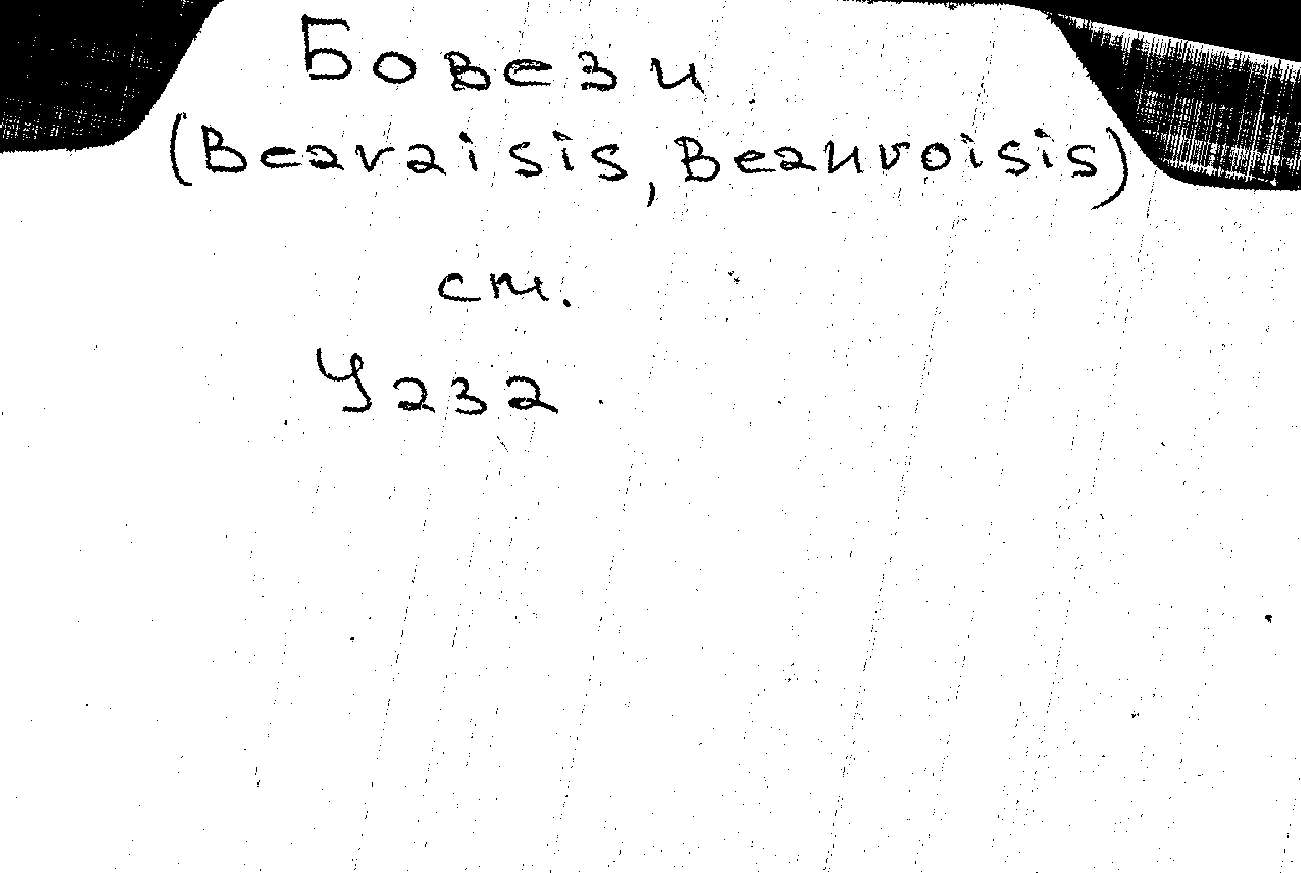 Бовези
(Beavaisis, Beauvoisis)
см.
Уаза